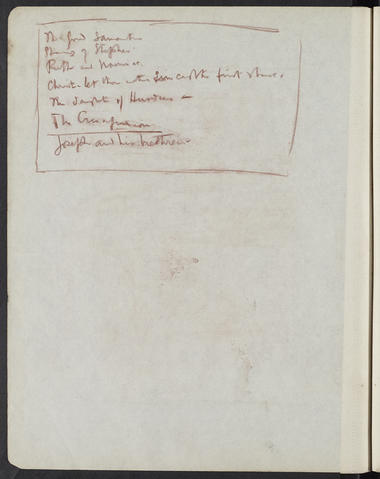 The good Samaritan
Stoning of Stephen
Ruth and Naomi
Christ - let him cast the first stone.
The Daughter of Herodias -
The
Joseph and his brethren